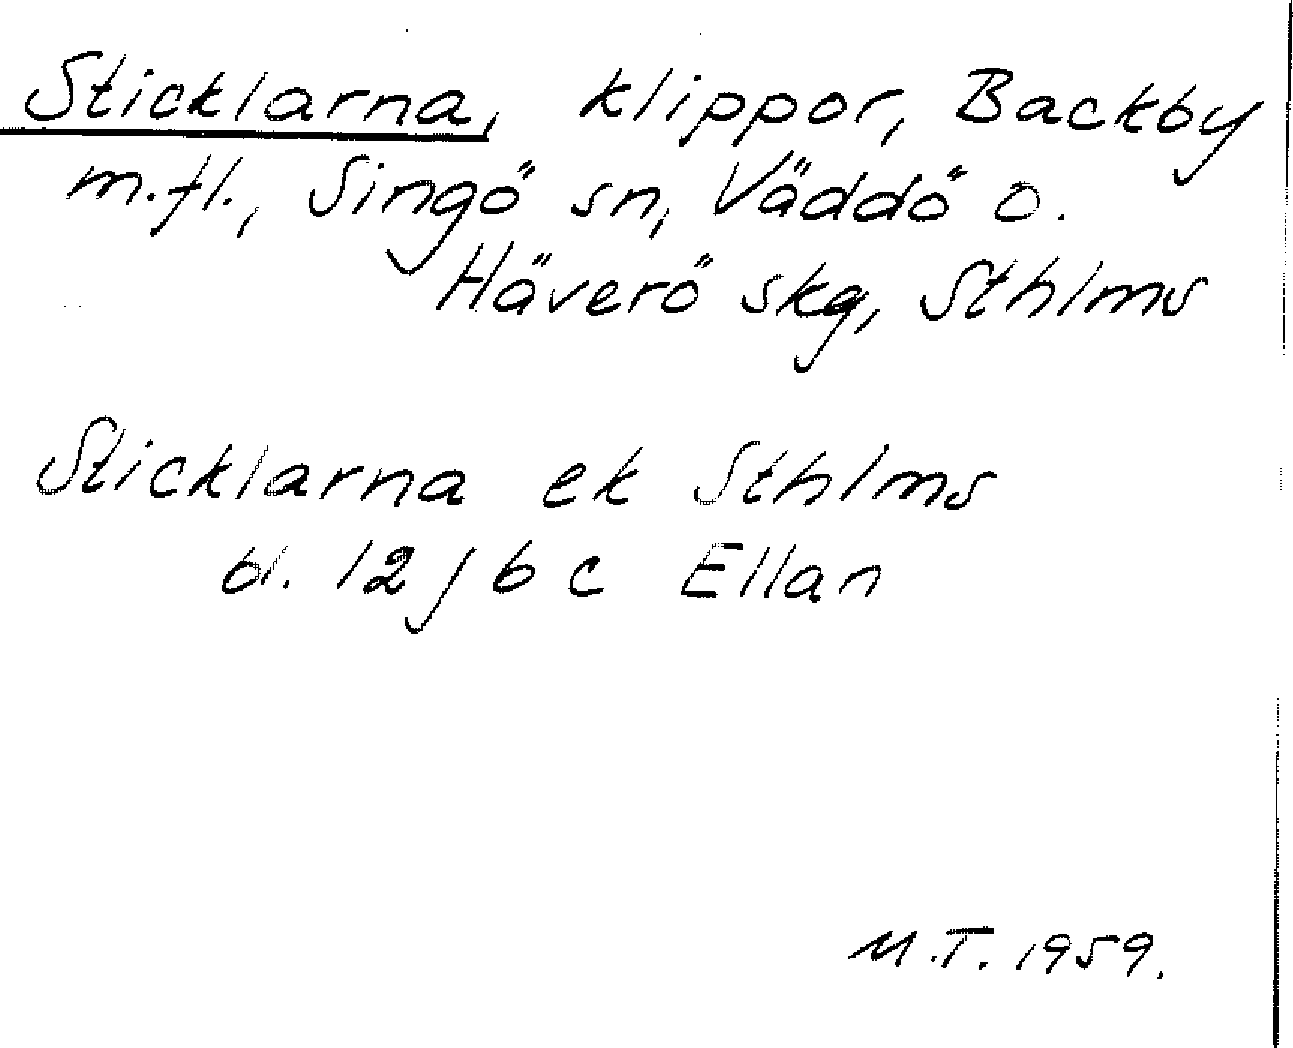 Sticklarna, klippor, Backby
m.fl., Singö sn, Väddö o.
Häverö skg, Sthlms
Sticklarna ek Sthlms
bl. 12 j 6 c Ellan
M.T. 1959.